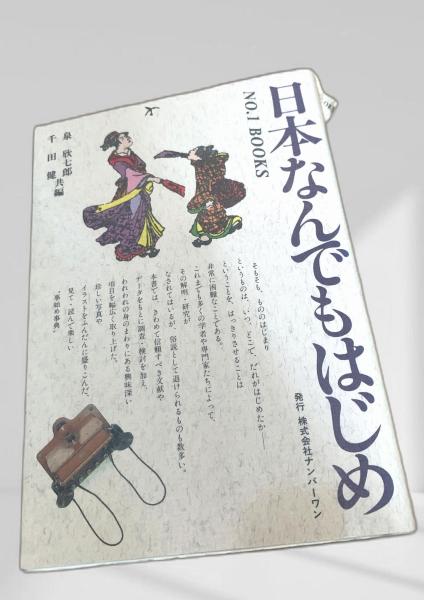 日本なんでもはじめ
NO.1 BOOKS
泉 欣七郎
千田 健 共編
そもそも、もののはじまり
というものは、いつ、どこで、だれがはじめたか――
ということを、はっきりさせることは
非常に困難なことである。
これまでも多くの学者や専門家たちによって、
その解明・研究が
なされてはいるが、俗説として退けられるものも数多い。
本書では、きわめて信頼すべき文献や
データをもとに調査・検討を加え、
われわれの身のまわりにある興味深い
項目を幅広く取り上げた。
珍しい写真や
イラストをふんだんに盛りこんだ、
見て・読んで楽しい
“事始め事典”
発行 株式会社ナンバーワン